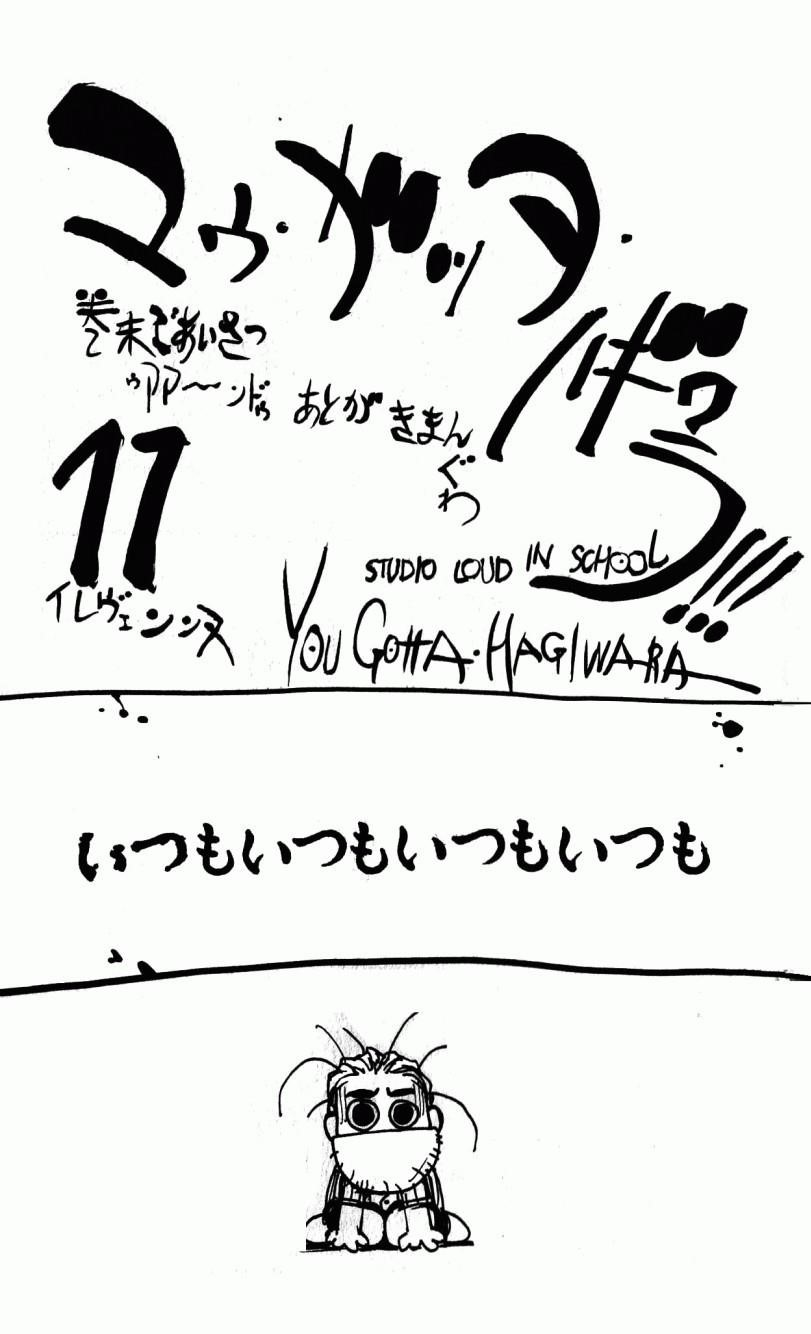 マゥ・ガッタ・
ハギワラ!!!
巻末ごあいさつ
ゥアア〜ンドゥ
あとがきまんぐわ
11
イレヴェンンヌ
STUDIO LOUD IN SCHOOL
YOU GOTTA・HAGIWARA
いつもいつもいつもいつも